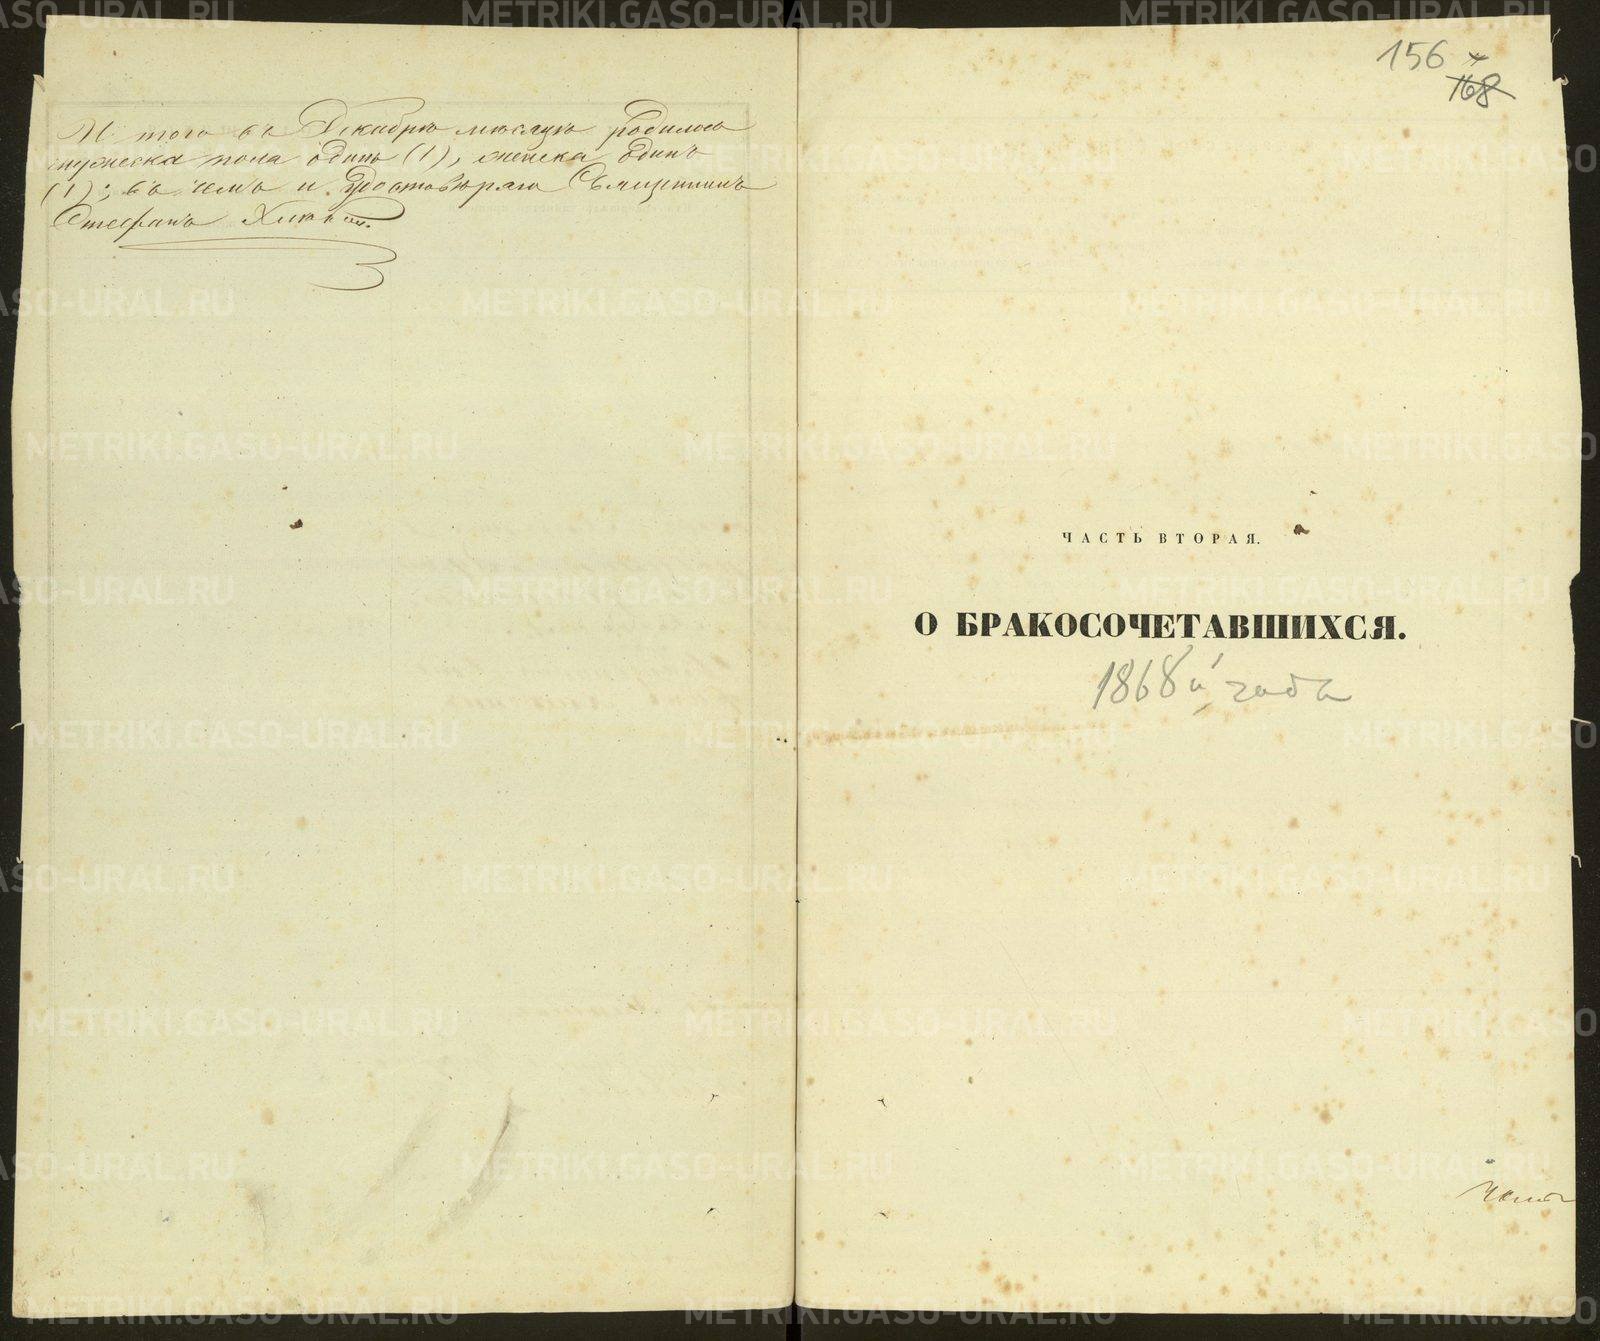 И того въ Декабрѣ мѣсяцѣ родилось
мужеска пола одинъ (1), женска одинъ
(1); въ чемъ и удостовѣряю Священникъ
Стефанъ
156
168
ЧАСТЬ ВТОРАЯ.
О БРАКОСОЧЕТАВШИХСЯ.
1868й года
METRIKI.GASO-URAL.RU